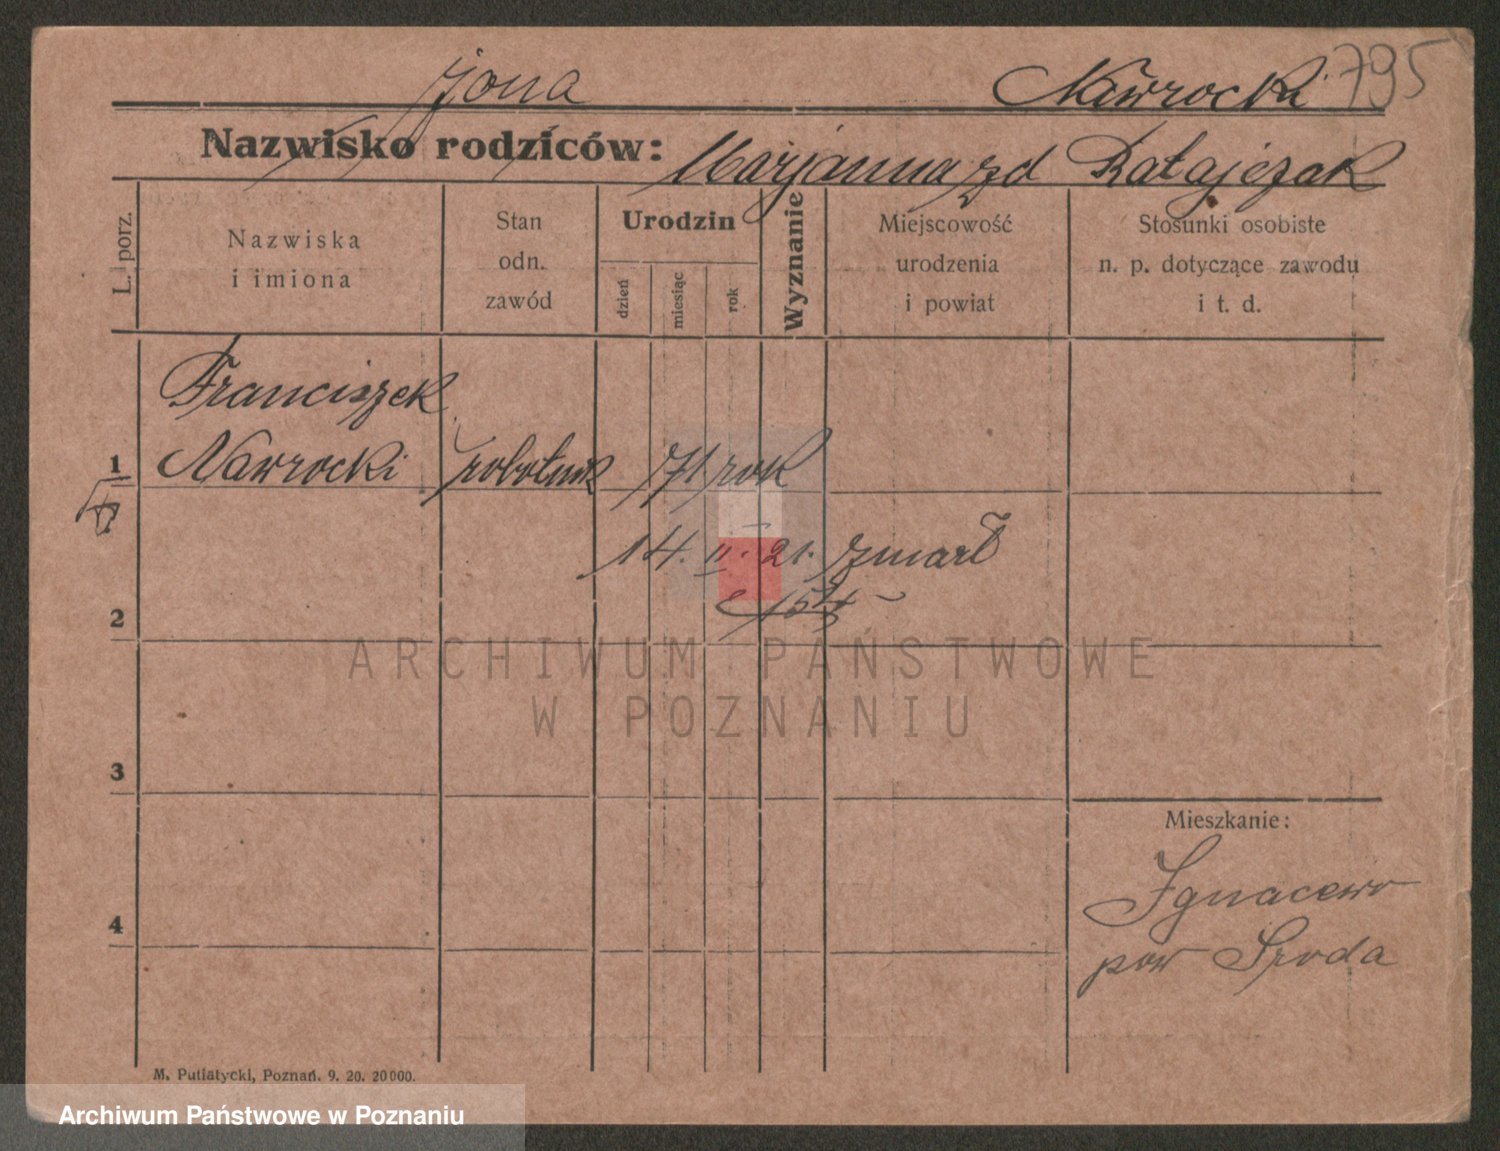 żona Nawrocki 795
Nazwisko rodziców: Marjanna zd Ratajczak
L. porz.
Nazwiska
i imiona
Stan
odn.
zawód
Urodzin
dzień
miesiąc
rok
Wyznanie
Miejscowość
urodzenia
i powiat
Stosunki osobiste
n. p. dotyczące zawodu
i t. d.
Franciszek
1 Nawrocki robotnik 71 rok
14. II. 21. zmarł
2
3
Mieszkanie:
Ignacewo
4
pow Środa
M. Putiatycki, Poznań. 9. 20. 20000.
ARCHIWUM PAŃSTWOWE
W POZNANIU
Archiwum Państwowe w Poznaniu